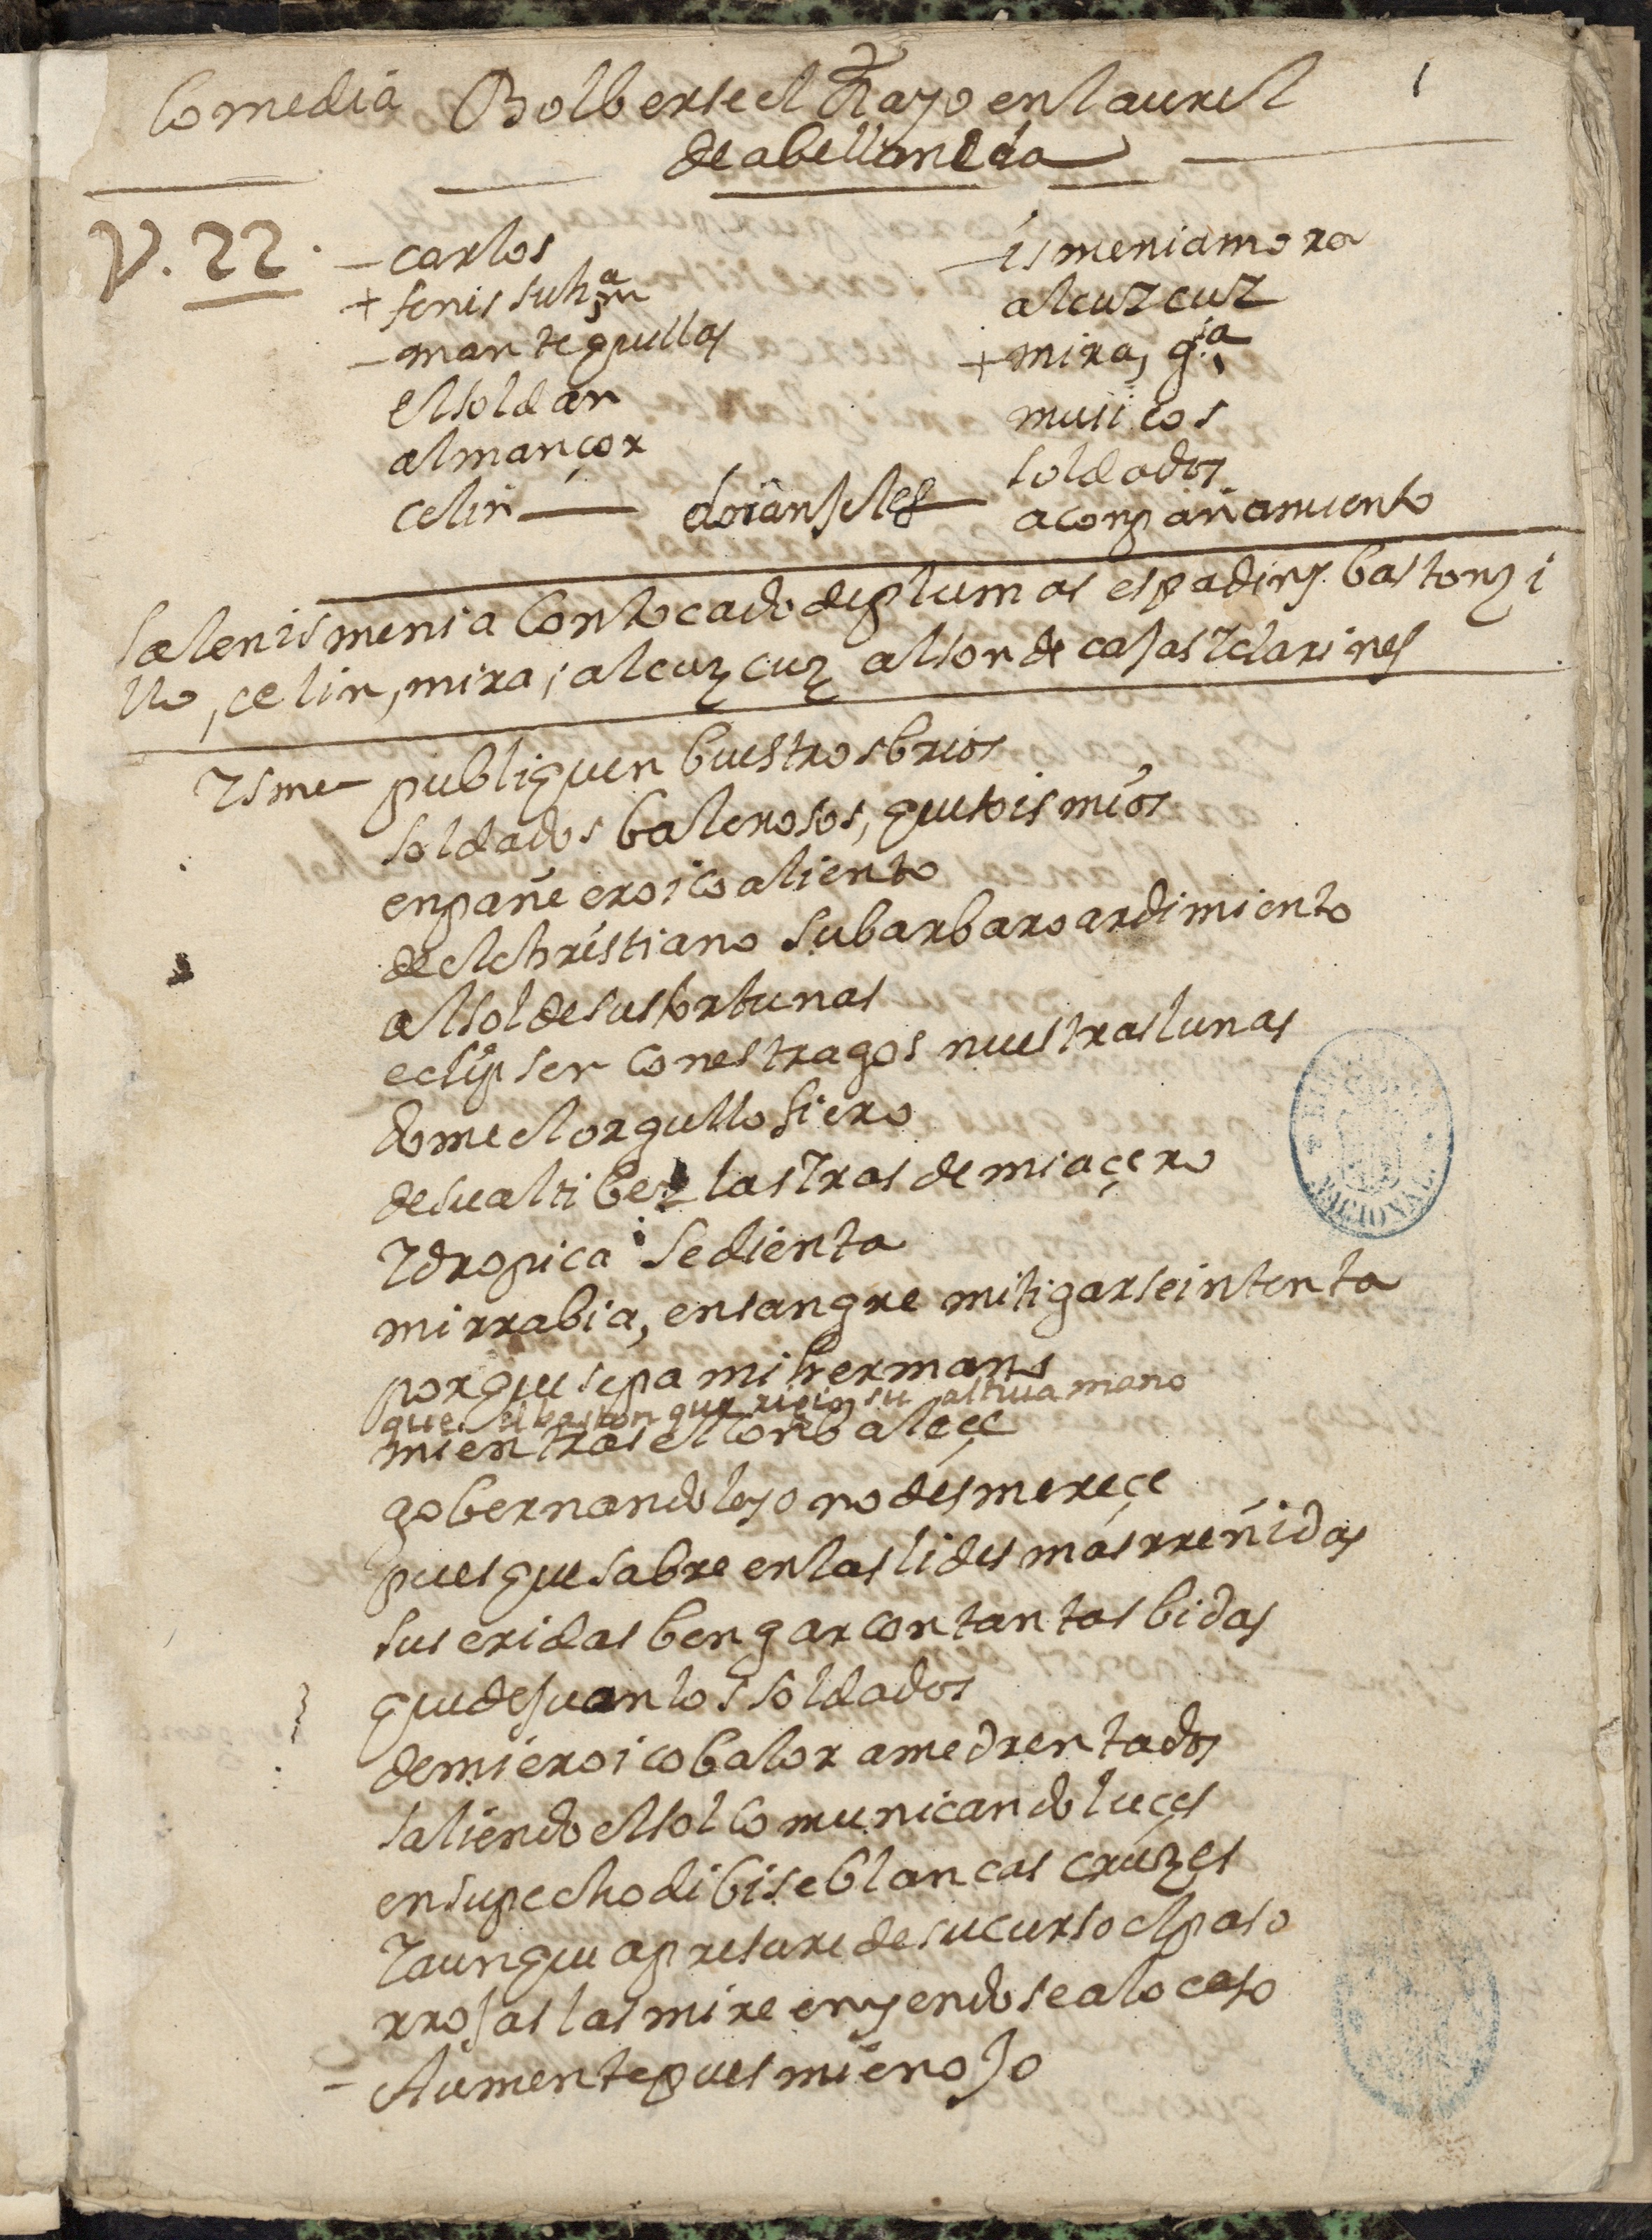 Comedia Bolberse el Rayo en laurel 1
de abellaneda
V. 22.
– carlos
+ fenis su h.ª
– mantequillas
el soldan
almançor
celin — doi anjeles
– ismenia mora
alcuzcuz
+ mira, g.ª
musicos
soldados
aconpañamiento
salen ismenia con tocado de plumas espadin y bastonzi
llo, celin, mira, i alcuzcuz al son de cajas i clarines
Isme – publiquen buestros brios
soldados balerosos, que sois mios
enpañe eroico aliento
de el christiano su barbaro ardimiento
al sol de sus fortunas
eclipsen con estragos nuestras lunas
dome el orgullo fiero
de su altibez las iras de mi açero
Idropica i sedienta
mi rrabia, en sangre mitigarse intenta
porque sepa mi hermano
que el baston que rigio su altiua mano
mientras el conbaleçe
gobernandole yo no desmereçe
pues que sabre en las lides mas rreñidas
sus eridas bengar con tantas bidas
que dejuan los soldados
de mi eroico balor amedrentados
saliendo el sol comunicando luçes
en su pecho dibise blancas cruzes
I aunque apresure de su curso el paso
rrojas las mire enyendose al ocaso
Aumente pues mi enojo
BIBLIOTECA NACIONAL